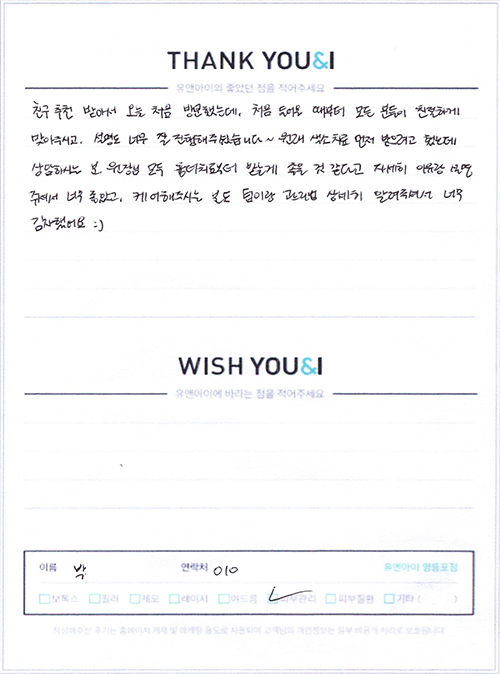 THANK YOU&I
유앤아이의 좋았던 점을 적어주세요
친구 추천 받아서 오늘 처음 방문했는데, 처음 들어올 때부터 모든 분들이 친절하게
맞아주시고, 설명도 너무 잘 진행해주셨습니다~ 원래 색소치료 먼저 받으려고 했는데
상담하시는 분, 원장님 모두 홍더치료부터 받는게 좋을 것 같다고 자세히 이유랑 설명
주셔서 너무 좋았고, 케어해주시는 분도 팁이랑 관리법 상세히 알려주셔서 너무
감사했어요 :)
WISH YOU&I
유앤아이에 바라는 점을 적어주세요
이름 박 연락처 010 유앤아이 영등포점
보톡스 필러 제모 레이저 여드름 피부관리 피부질환 기타 ( )
작성해주신 후기는 홈페이지 게재 및 마케팅 용도로 사용되며 고객님의 개인정보는 일부 비공개 처리로 보호됩니다.